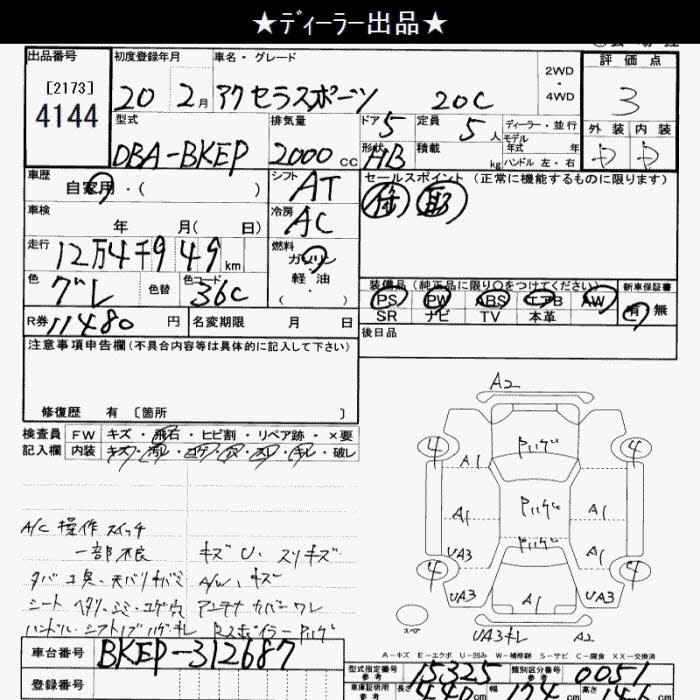 ★ディーラー出品★
出品番号
[2173]
4144
初度登録年月
20年2月
車名・グレード
アクセラスポーツ 20C
2WD
・
4WD
評価点
3
外装 内装
型式
DBA-BKEP
排気量
2000cc
ドア
5
形状
HB
定員
5人
積載
kg
ディーラー・並行
モデル
年式 年
ハンドル 左・右
車歴
自家用・( )
シフト
AT
セールスポイント (正常に機能するものに限ります)
車検
年 月( 日)
冷房
AC
走行
12万4千949km
燃料
ガソリン
軽油
( ・ )
色
グレ
色替
色コード
36C
装備品(純正品に限り○をつけてください)
PS PW ABS エアB AW
SR ナビ TV 本革
新車保証書
有 無
R券 11480円
名変期限 月 日
後日品
注意事項申告欄(不具合内容等は具体的に記入して下さい)
修復歴 有 〔箇所 〕
検査員
記入欄
FW キズ・飛石・ヒビ割・リペア跡・×要
内装 キズ・汚レ・コゲ・穴・スレ・キレ・破レ
A/C 操作スイッチ
一部不良 キズU、スリキズ
A/W、キズ
シート ヘタリ・シミ・コゲ穴 アンテナカバーワレ
A2
4 4
A1
Pハゲ
A1 Pハゲ A1
UA3 Pハゲ A1
4 4
UA3 A1 UA3
スペア
UA3キレ A2
A-キズ E-エクボ U-凹み W-波 S-サビ C-腐食 XX-交換済
車台番号 BKEP-312687
型式指定番号
参考
15325
類別区分番号
参考
0051
登録番号
車庫証明用
参考
長さ 440cm 幅 174cm 高さ 146cm